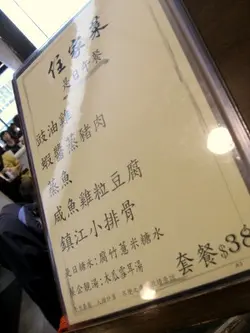 住家菜
是日午餐
豉油雞
蝦醬蒸豬肉
蒸魚
咸魚雞粒豆腐
鎮江小排骨
是日糖水:腐竹薏米糖水
套餐$38